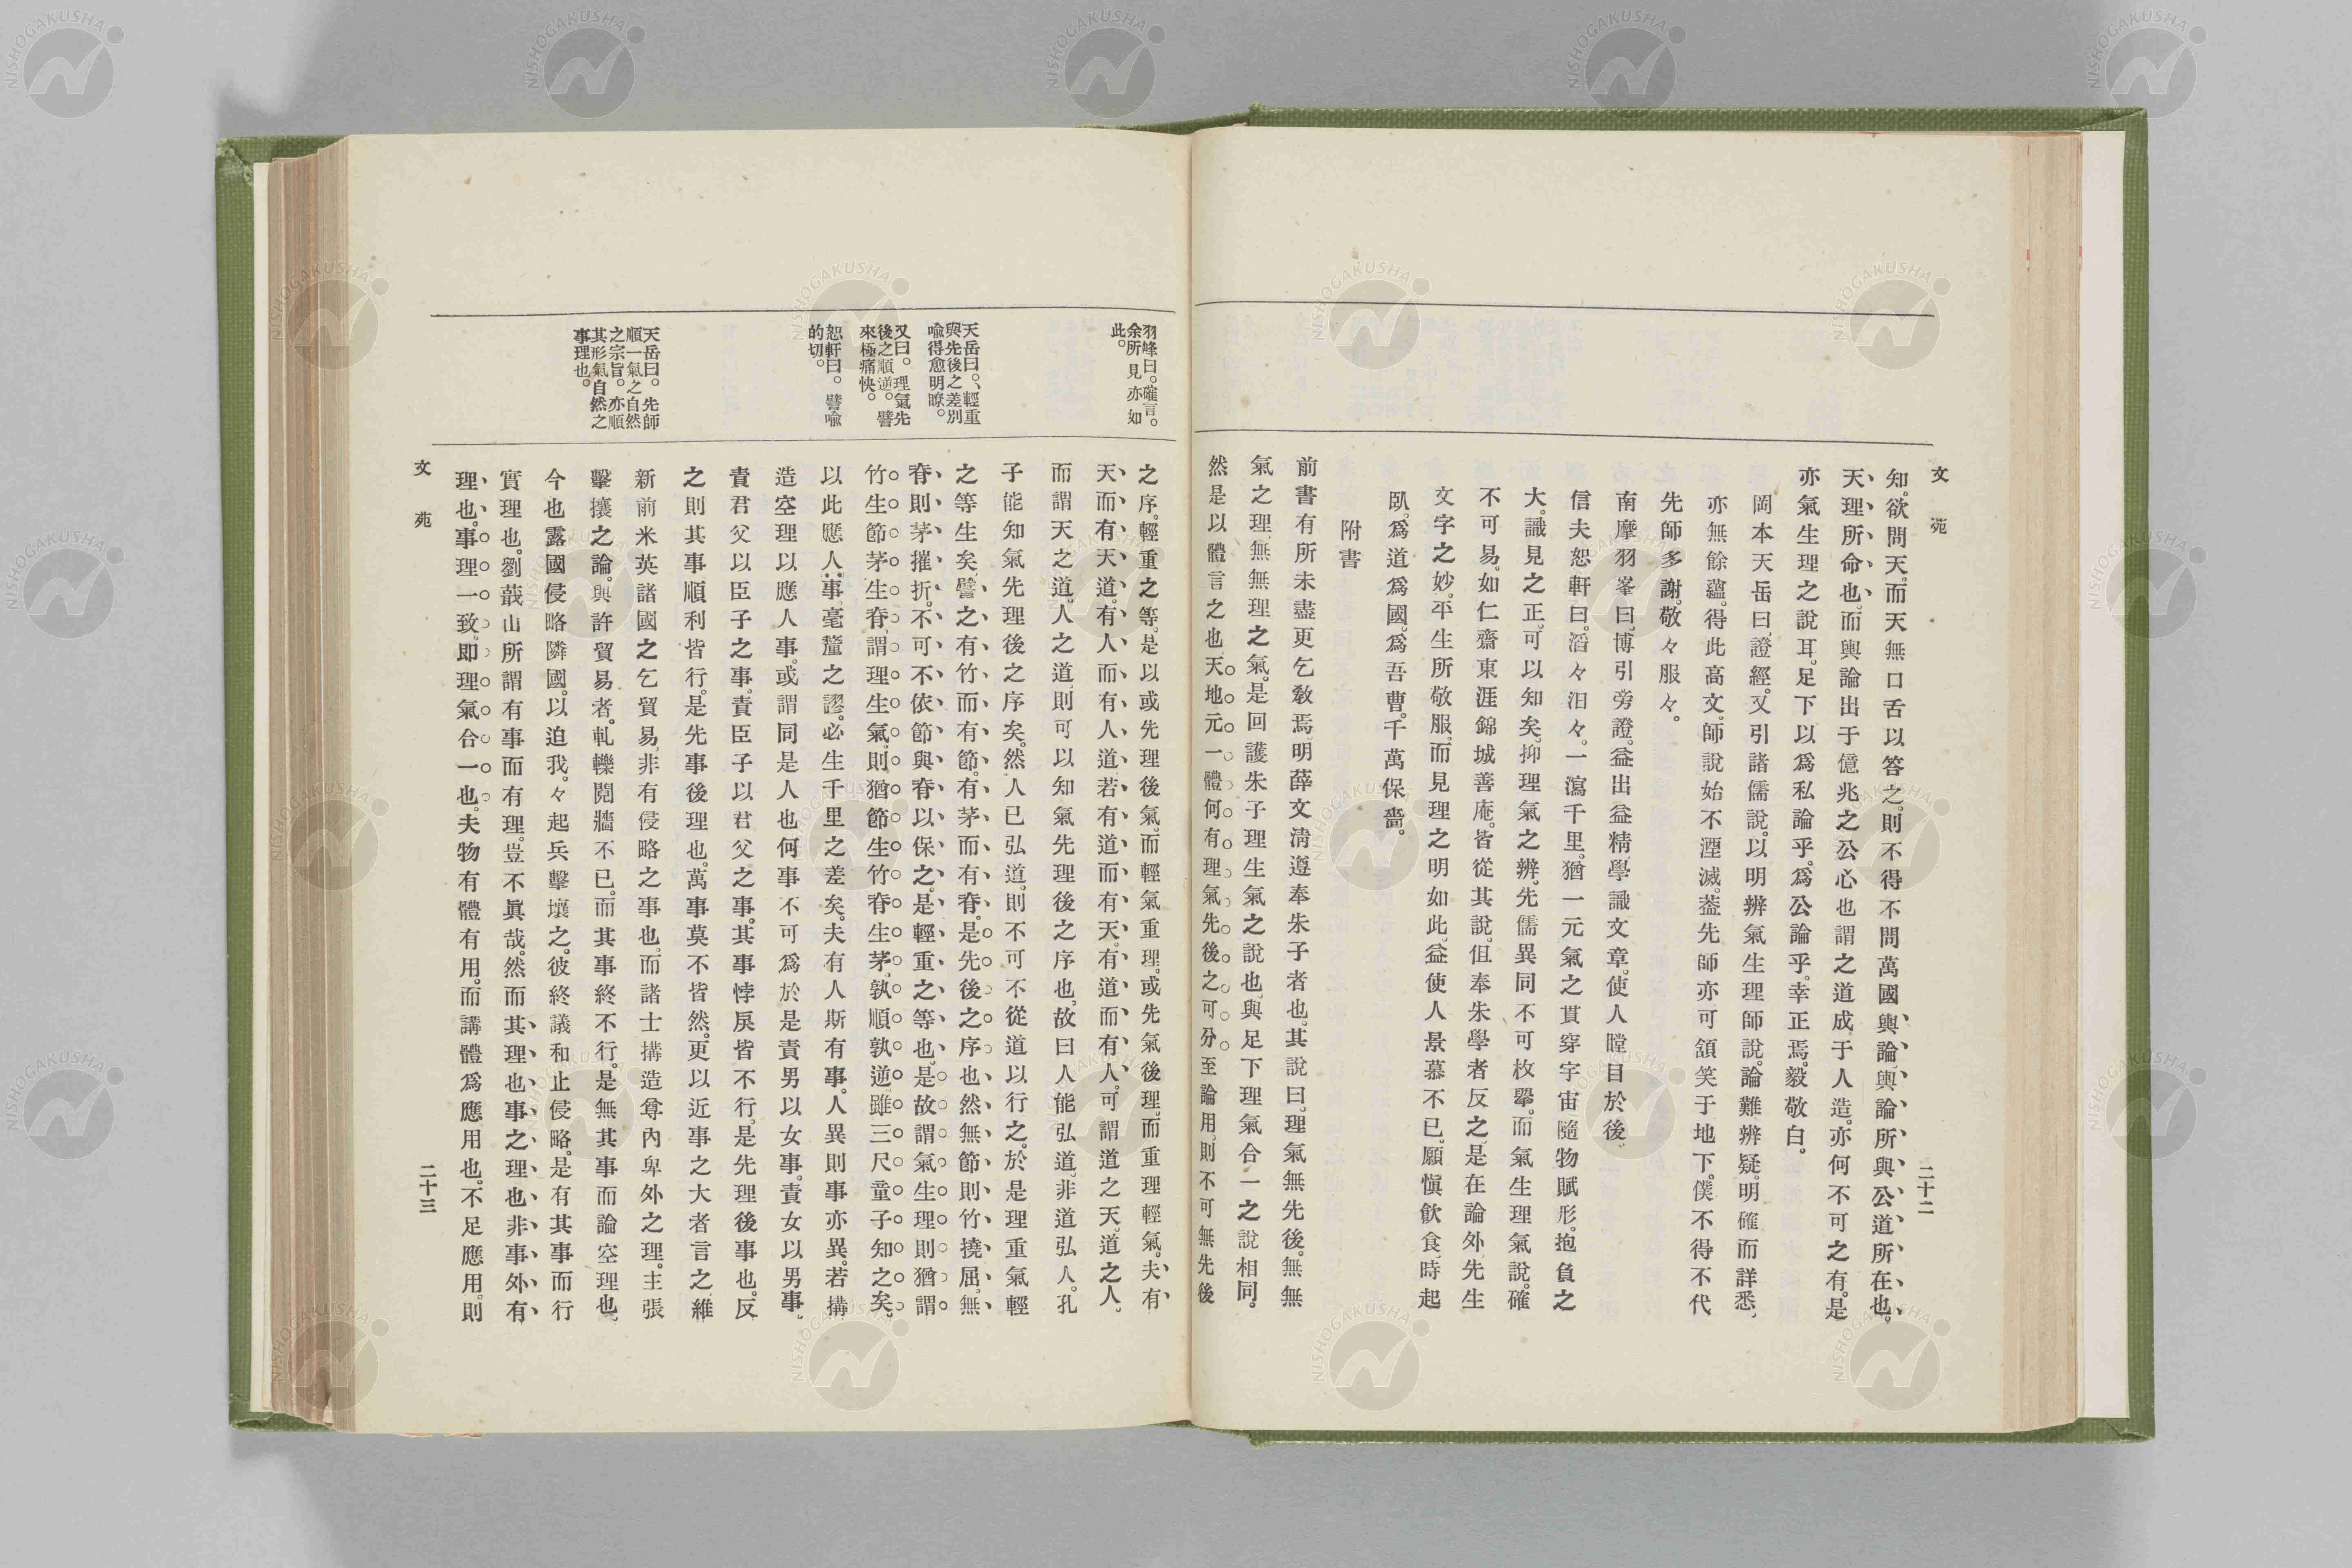 文苑
二十二
知。欲問天。而天無口舌以答之。則不得不問萬國輿論。輿論所與公道所在也。
天理所命也。而輿論出于億兆之公必也謂之道成于人造。亦何不可之有。是
亦氣生理之說耳。足下以爲私論乎。爲公論乎。幸正焉。毅敬白。
岡本天岳曰。證經。又引諸儒說。以明辨氣生理師說。論難辨疑。明確而詳悉、
亦無餘蘊。得此高文。師說始不湮滅。葢先師亦可頷笑于地下。僕不得不代
先師多謝。敬々服々。
南摩羽峯曰。博引旁證。益出益精。學識文章。使人瞠目於後、
信夫恕軒曰。滔々汨々。一瀉千里。猶一元氣之貫穿宇宙隨物賦形。抱負之
大。識見之正。可以知矣。抑理氣之辨。先儒異同不可枚擧。而氣生理氣說。確
不可易。如仁齋東涯錦城善庵。皆從其說。但奉朱學者反之。是在論外。先生
文字之妙。平生所敬服。而見理之明如此。益使人景慕不已。願愼飮食。時起
臥。爲道爲國。爲吾曹。千萬保嗇。
附書
前書有所未盡更乞敎焉。明薛文淸遵奉朱子者也。其說曰。理氣無先後。無無
氣之理。無無理之氣。是回護朱子理生氣之說也。與足下理氣合一之說相同。
然是以體言之也天地元一體何有理氣先後之可分。至論用。則不可無先後
羽峰曰。確言。
余所見亦如
此。
天岳曰。輕重
與先後之差別
喩得愈明瞭。
又曰。理氣先
後之順逆。譬
來極痛快。
恕軒曰。譬喩
的切。
天岳曰。先師
順一氣之自然
之宗旨。亦順
其形氣自然之
事理也。
之序。輕重之等。是以或先理後氣。而輕氣重理。或先氣後理。而重理輕氣。夫有
天而有天道。有人而有人道。若有道而有天。有道而有人。可謂道之天。道之人。
而謂天之道。人之道。則可以知氣先理後之序也。故曰人能弘道。非道弘人。孔
子能知氣先理後之序矣。然人已弘道。則不可不從道以行之。於是理重氣輕
之等生矣。譬之有竹而有節。有茅而有脊。是先後之序也。然無節則竹撓屈。無
脊則茅摧折。不可不依節與脊以保之。是輕重之等也。是故謂氣生理則猶謂
竹生節茅生脊。謂理生氣。則猶節生竹脊生茅。孰順孰逆。雖三尺童子知之矣。
以此應人事。毫釐之謬。必生千里之差矣。夫有人斯有事。人異則事亦異。若搆
造空理以應人事。或謂同是人也何事不可爲於是責男以女事。責女以男事。
責君父以臣子之事。責臣子以君父之事。其事悖戾皆不行。是先理後事也。反
之則其事順利皆行。是先事後理也。萬事莫不皆然。更以近事之大者言之維
新前米英諸國之乞貿易。非有侵略之事也。而諸士搆造尊內卑外之理。主張
擊攘之論。與許貿易者。軋轢鬩牆不已。而其事終不行。是無其事而論空理也。
今也露國侵略隣國。以迫我。々起兵擊壤之。彼終議和止侵略。是有其事而行
實理也。劉蕺山所謂有事而有理。豈不眞哉。然而其理也事之理也非事外有
理也。事理一致。卽理氣合一也。夫物有體有用。而講體爲應用也。不足應用。則
文苑
二十三